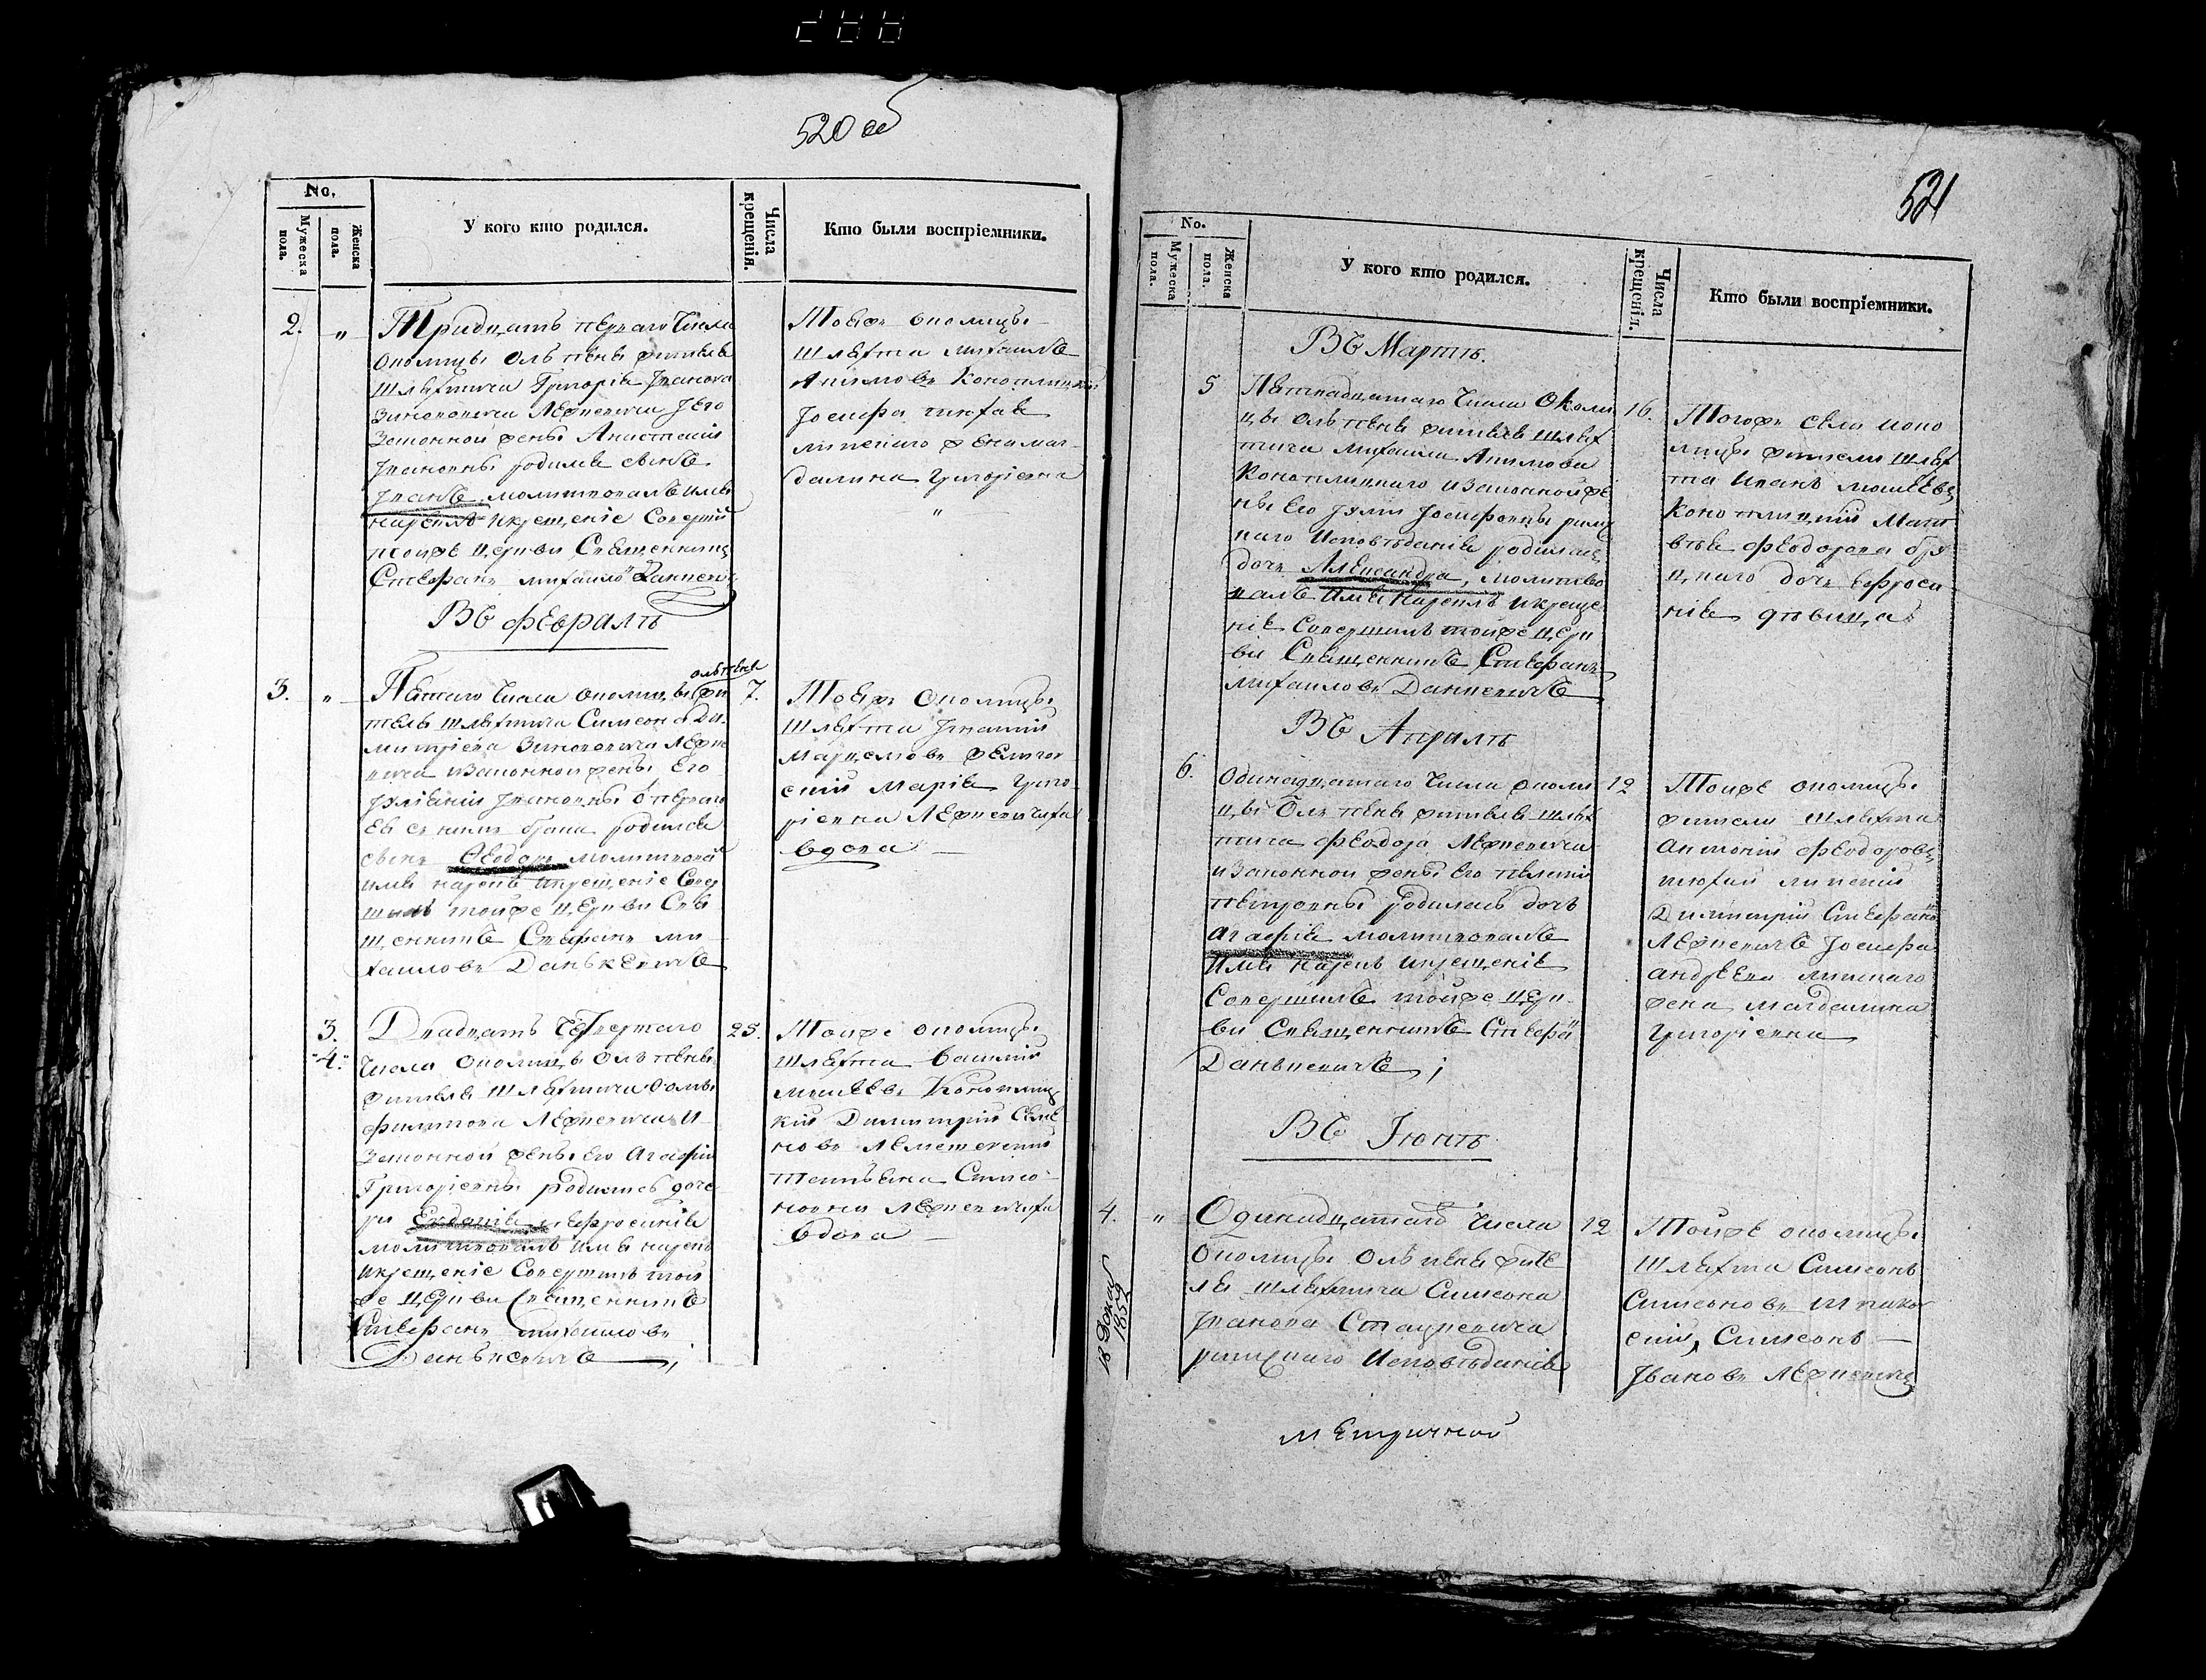 288
520 об
No.
Мужеска пола.
Женска пола.
У кого кто родился.
Числа крещенія.
Кто были воспріемники.
2. „ Тридцать перваго Числа
околицы Ольпень житель
Шляхтича Григорія Іванова
Зиновевича Лефкевича Іего
Законной жены Анастасіи
Івановны родился сынъ
Іванъ молитвовалъ имя
нареклъ икрещеніе Соверши
тойже Церкви Священникъ
Стефанъ Михайловъ
Тоеяжъ околицы
Шляхта Михаилъ
Акимовъ Коноплицкій
Іосифа
жена маг
далина Григоріевна
„
Въ февралѣ
3. „ Пятаго Числа околицы Ольпень жи 7.
тель Шляхтича Симеона Ди
митріева Зиновевича Лефке
вича изаконной жены Его
Іуліаніи Івановны
родился
сынъ Ѳеодоръ молитвовалъ
имя нарекъ икрещеніе Совер
шилъ тойже Церкви Свя
щенникъ Стефанъ Ми
хаиловъ Данькевичъ
Тоеяжъ Околицы
Шляхта Ігнатій
Марія Григо
ріевна Лефкевичиха
вдова
3. Двадцать Четвертаго 25.
„4.„ Числа околицы Ольпень
житель Шляхтича Ѳомы
Филипова Лефкевича И
Законной жены Его Агафіи
Григоріевны родились доче
ри Евдокія иевфросинія
молитвовалъ имя нарекъ
икрещеніе Совершилъ той
же Церкви Священникъ
Стефанъ Михаиловъ
Данькевичъ ;
Тойже околицы
Шляхта Василій
Коноплиц
кій Димитрій Семе
новъ
Татьяна Симео
новна Лефкевичиха
вдова
521
No.
Мужеска пола.
Женска пола.
У кого кто родился.
Числа крещенія.
Кто были воспріемники.
Въ Мартѣ.
5 Пятнадцатаго Числа Околи 16.
цы Ольпень житель Шлях
тича Михаила Акимова
Коноплицкаго изаконной же
ны Его Іуліи Іосифовны рим
скаго Исповѣданія родилась
дочь Александра, молитво
валъ имя нарекъ икреще
ніе Совершилъ тойже Церк
ви Священникъ Стефанъ
Михаиловъ Данкевичъ
Тогожъ села
жители Шлях
та Иванъ
Коноплицкій Мат
вѣя Феодорова
дочь Евфроси
нія дѣвица
Въ Апрѣлѣ
6. Одинадцатаго Числа околи 12
цы Ольпень житель Шлях
тича Феодора Лефкевича
изаконной жены Его Пелагіи
Петровны родилась дочь
Агафія молитвовалъ
имя нарекъ икрещеніе
Совершилъ тойже Церк
ви Священникъ Стефан
Данькевичъ ;
Тойже околицы
жители Шляхта
Антоній Феодоровъ
Димитрій Стефановъ
Лефкевичъ Іосифа
Андреева
жена Магдалина
Григоріевна
Въ Іюнѣ
4. „ Одинадцатаго Числа 12
околицы Ольпень жите
ля Шляхтича Симеона
Іванова Стацкевича
римскаго Исповѣданія
Тойже околицы
Шляхта Симеонъ
Симеоновъ
Симеонъ
Івановъ Лефкевичъ
1852
Метричной